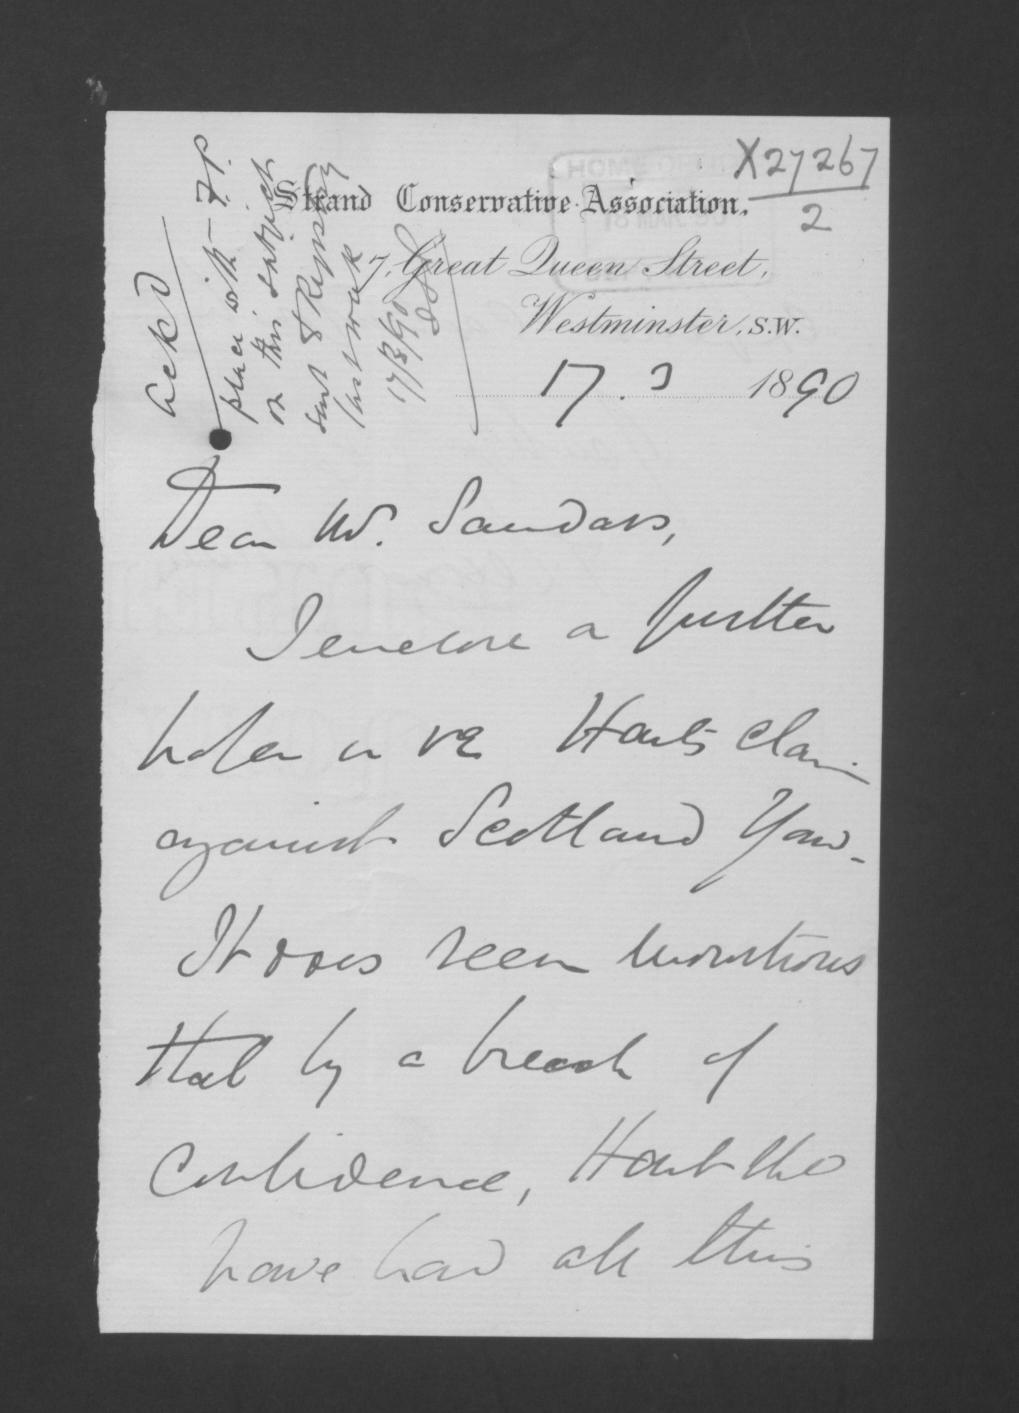 X27267
2
HOME OFFICE
Strand Conservative Association,
7, Great Queen Street,
Westminster, S.W.
17. 3 1890
ackd
place with – F.P.
on this subject
sent
last week
17/3/90
Dear Mr. Saunders,
I enclose a further
in re Hart's claim
against Scotland Yard.
It does seem monstrous
that by a breach of
confidence, Hart
have had all this